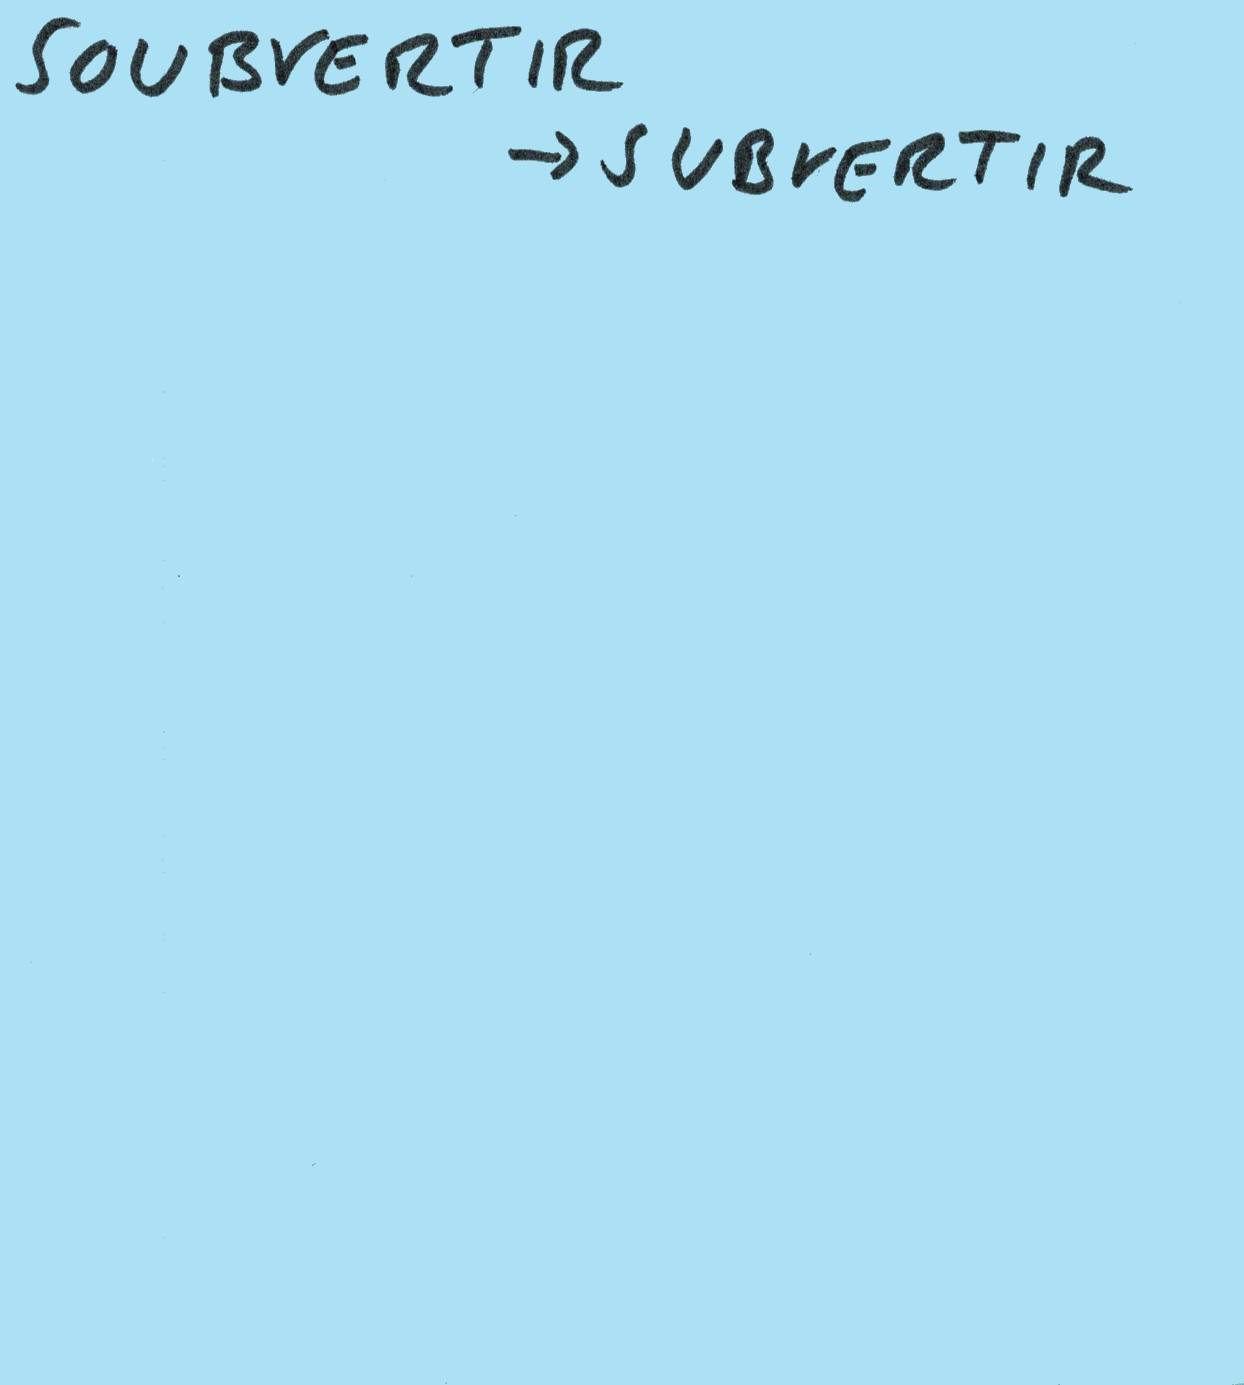 SOUBVERTIR
→ SUBVERTIR